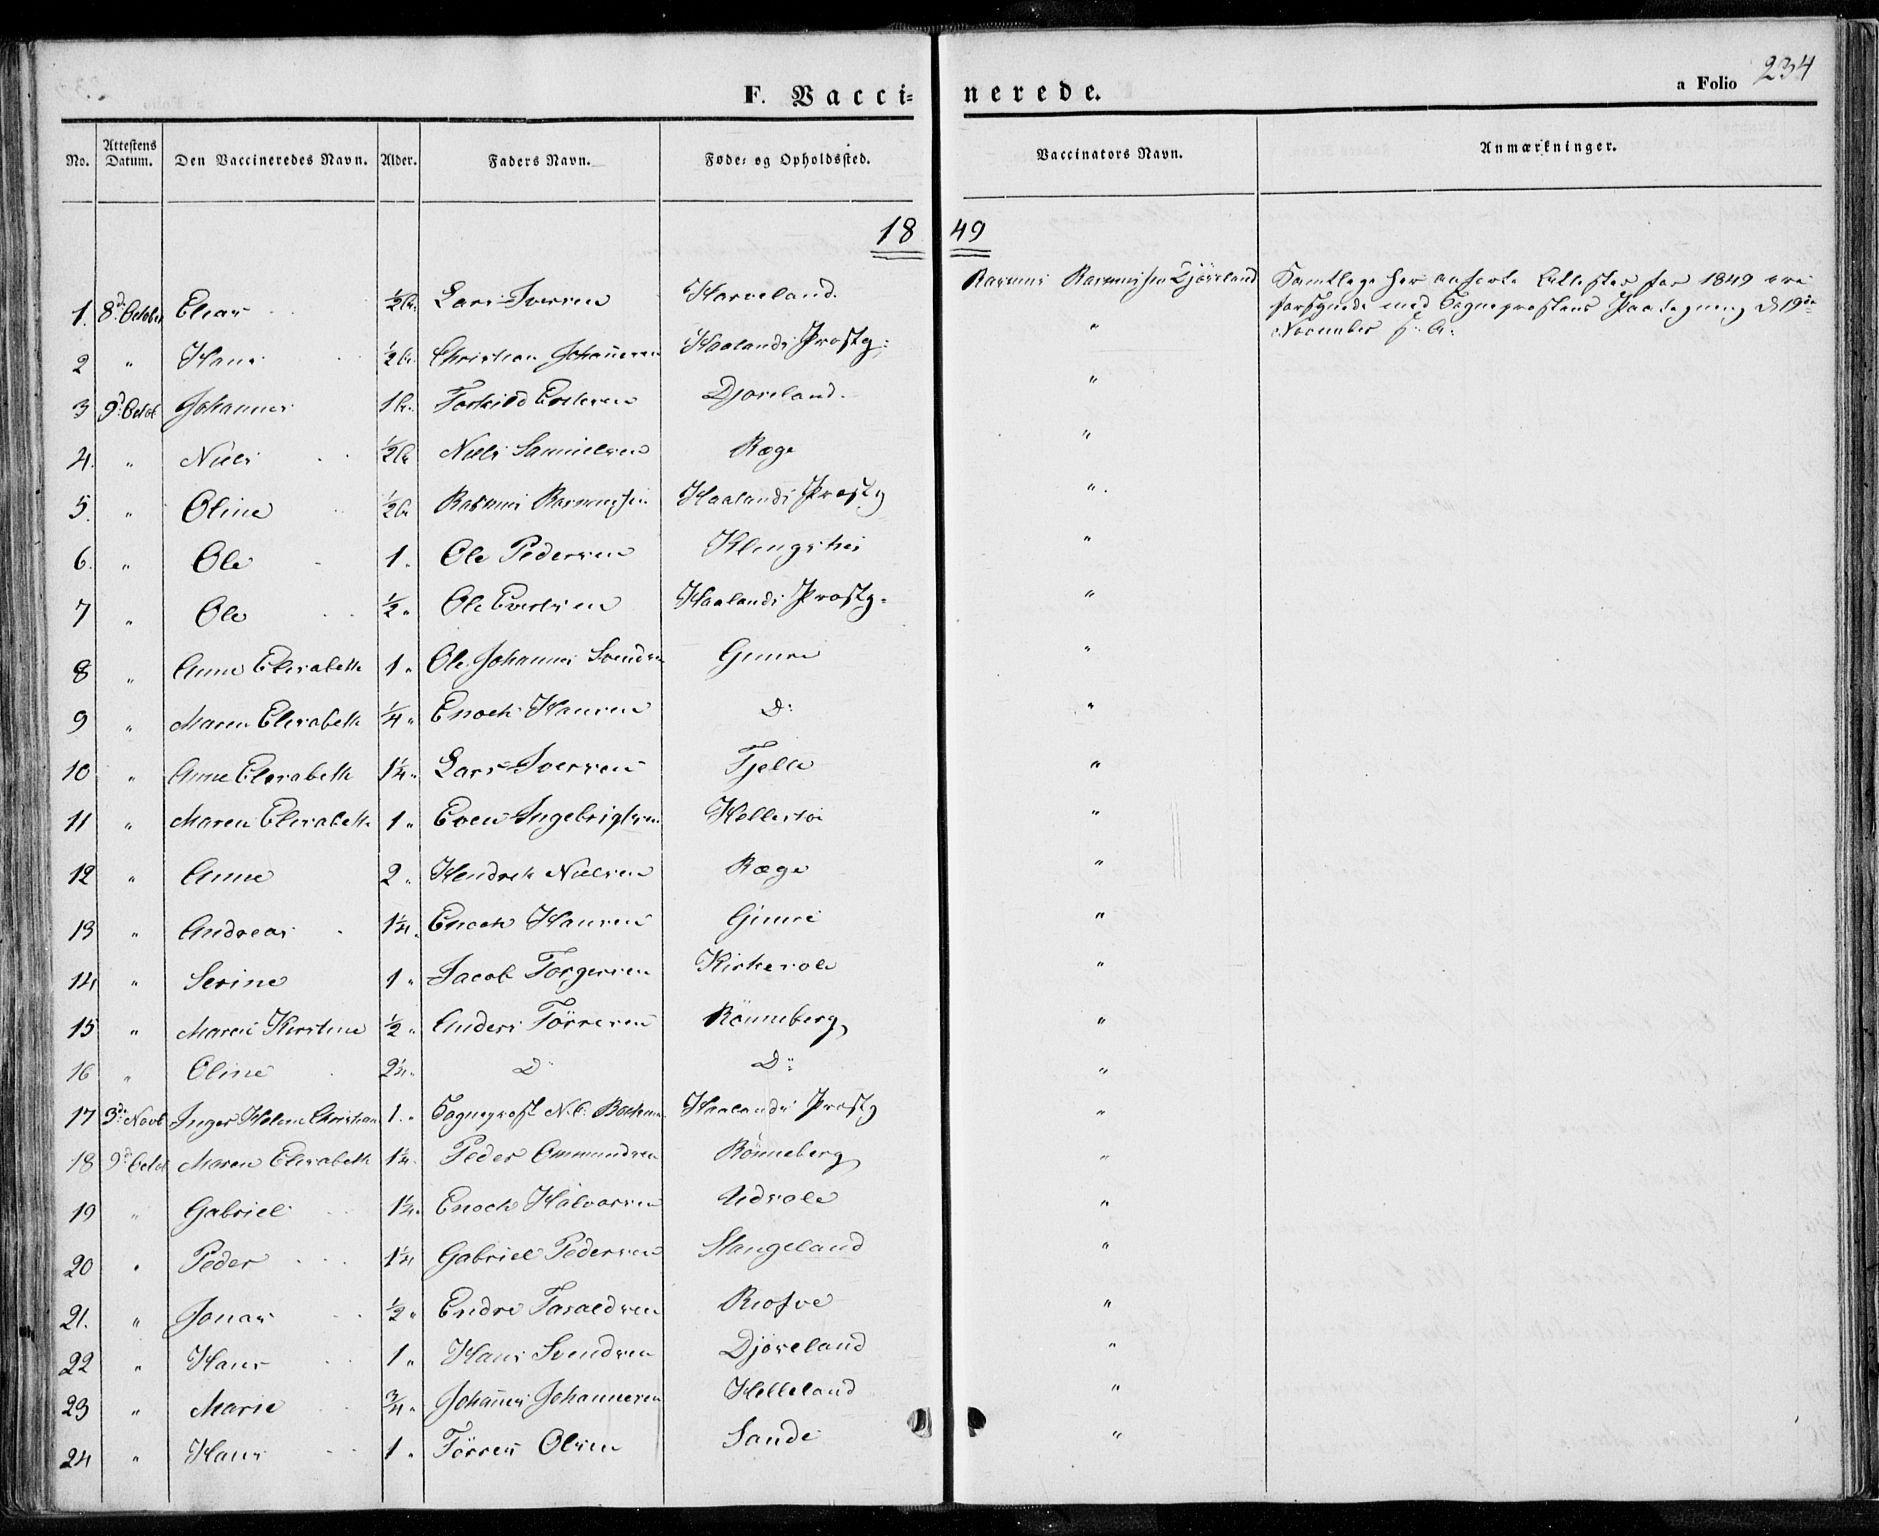 234
F. Vacci= nerede. a Folio
No. Attestens Datum. Den Vaccineredes Navn. Alder. Faders Navn. Føde= og Opholdssted. Vaccinators Navn. Anmærkninger.
1849
1. 8de October Elias ½ Lars Iversen Harveland. Rasmus Rasmussen Djöseland Samtlige her anførte Attester for 1849 ere
forsynede med Sognepræstens Paategning d 19de
November s. A.
2 " Hans ½ Christian Johannesen Haalands Prostg: "
3 9d Octob Johannes 1 Torkild Djöseland. "
4. " Niels ½ Niels Samuelsen Ræge "
5. " Oline ½ Rasmus Rasmussen Haalands Prostg ".
6. " Ole 1. Ole Pedersen "
7 " Ole ½ " Ole Evertsen Haalands Prostg. "
8 " Anne Elisabeth 1 " Ole Johannes Svendsen Gimre "
9 " Maren Elisabeth ¼ " Enoch Hansen D: "
10 " Anne Elisabeth 1¼ " Lars Iversen Tjelle "
11 " Maren Elisabeth 1 " Even Ingebrigtsen "
12 " Anne 2 " Hendrik Nielsen Ræge "
13 " Andreas 1¼ " Enoch Hansen Gimre "
14 " Serine 1 " Jacob Torgersen Kirkesole "
15 " Maren Kirstine ½ " Anders Törresen Rönneberg "
16 " Oline 2¼ " D D: "
17 3de Novb Inger Helene Christiane 1. " Sogneprest N. C. Haalands Prostg "
18 9d Octob Maren Elisabeth 1¼ Peder Ommundsen Rönneberg "
19 " Gabriel 1¼ Enoch Halvorsen Udsole "
20 " Peder 1¼ Gabriel Pedersen Stangeland "
21. " Jonas ½ " Endre "
22 " Hans 1 " Hans Svendsen Djöseland "
23 " Marie ¾ " Johannes Johannesen Helleland "
24 " Hans 1 " Törres Olsen Sande "